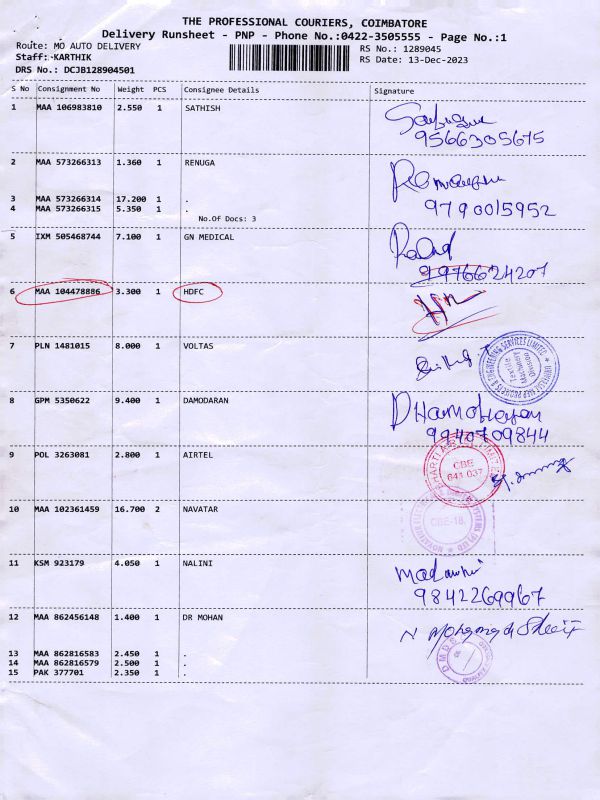 THE PROFESSIONAL COURIERS, COIMBATORE
Delivery Runsheet - PNP - Phone No.:0422-3505555 - Page No.:1
Route: MO AUTO DELIVERY
RS No.: 1289045
Staff: KARTHIK
RS Date: 13-Dec-2023
DRS No.: DCJB128904501
S No Consignment No Weight PCS Consignee Details Signature
1 MAA 106983810 2.550 1 SATHISH
9566305675
2 MAA 573266313 1.360 1 RENUGA
9790015952
3 MAA 573266314 17.200 1 .
4 MAA 573266315 5.350 1 .
No.Of Docs: 3
5 IXM 505468744 7.100 1 GN MEDICAL
9976624207
6 MAA 104478886 3.300 1 HDFC
7 PLN 1481015 8.000 1 VOLTAS
Textile Machinery Division
8 GPM 5350622 9.400 1 DAMODARAN
Dhamodharan
9940709844
9 POL 3263081 2.800 1 AIRTEL
CBE
641 037
10 MAA 102361459 16.700 2 NAVATAR
CBE-18.
11 KSM 923179 4.050 1 NALINI
9842269967
12 MAA 862456148 1.400 1 DR MOHAN
13 MAA 862816583 2.450 1 .
14 MAA 862816579 2.500 1 .
15 PAK 377701 2.350 1 .